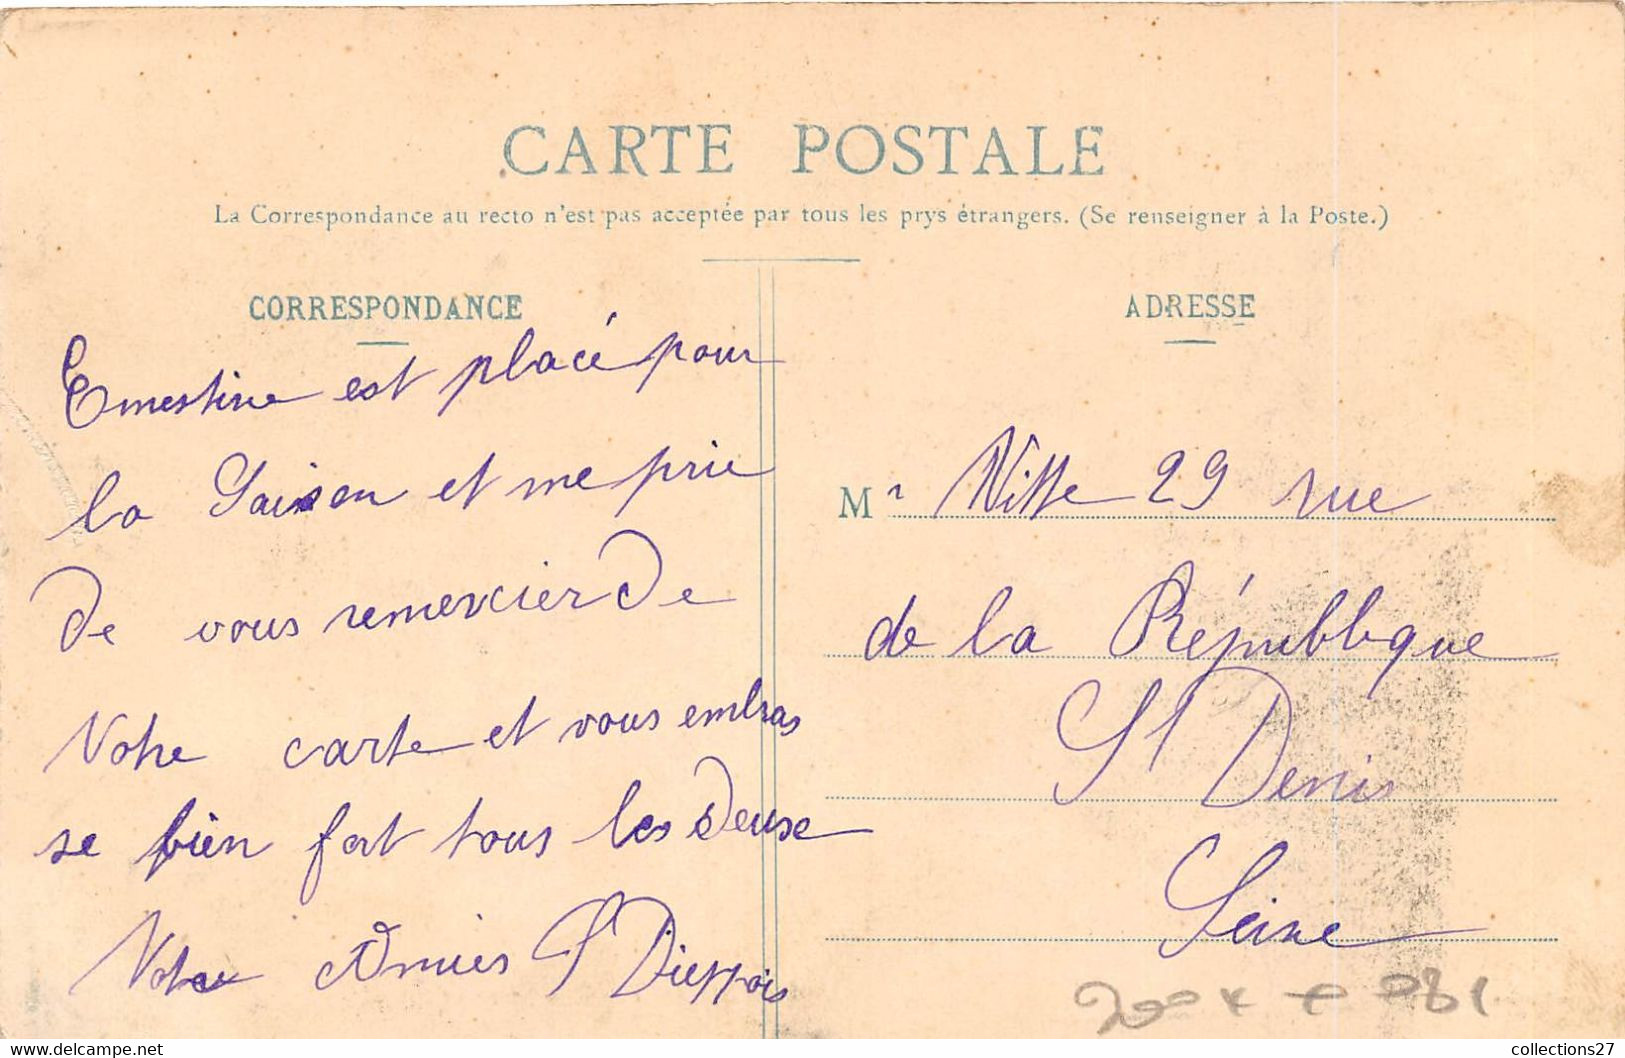 CARTE POSTALE
La Correspondance au recto n'est pas acceptée par tous les prys étrangers. (Se renseigner à la Poste.)
CORRESPONDANCE
Ernestine est placé pour
la Saison et me prie
de vous remercier de
Votre carte et vous embras
se bien fort tous les deuse
Votre Amies P Dieppois
ADRESSE
Mr Vitte 29 rue
de la République
St Denis
Seine
collections27